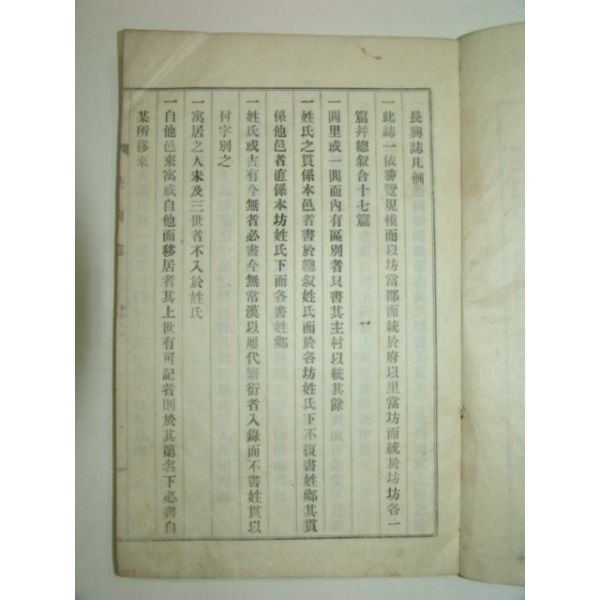 長興誌凡例
一此誌一依勝覽規模而以坊當郡而統於府以里當坊而統於坊坊各一
篇幷總叙合十七篇
一閭里或一閭而內有區別者只書其主村以統其餘
一姓氏之貫係本邑者書於總叙姓氏而於各坊姓氏下不復書姓鄕其貫
係他邑者直係本坊姓氏下而各書姓鄕
一姓氏或古有今無者必書今無常漢以屢代繁衍者入錄而不書姓貫以
村字別之
一寓居之人未及三世者不入於姓氏
一自他邑來寓或自他面移居者其上世有可記者則於其第名下必書自
某所移來